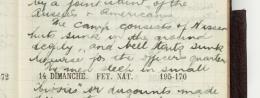 by a joint
Russets Americans.
The Camp consists of Nissen
huts sunk in the ground
deeply, and Bell tents sunk
likewise for the officers quarters
The men sleep in small
72 14 DIMANCHE. FET. NAT. 195-170
"bivvies" or dugouts made